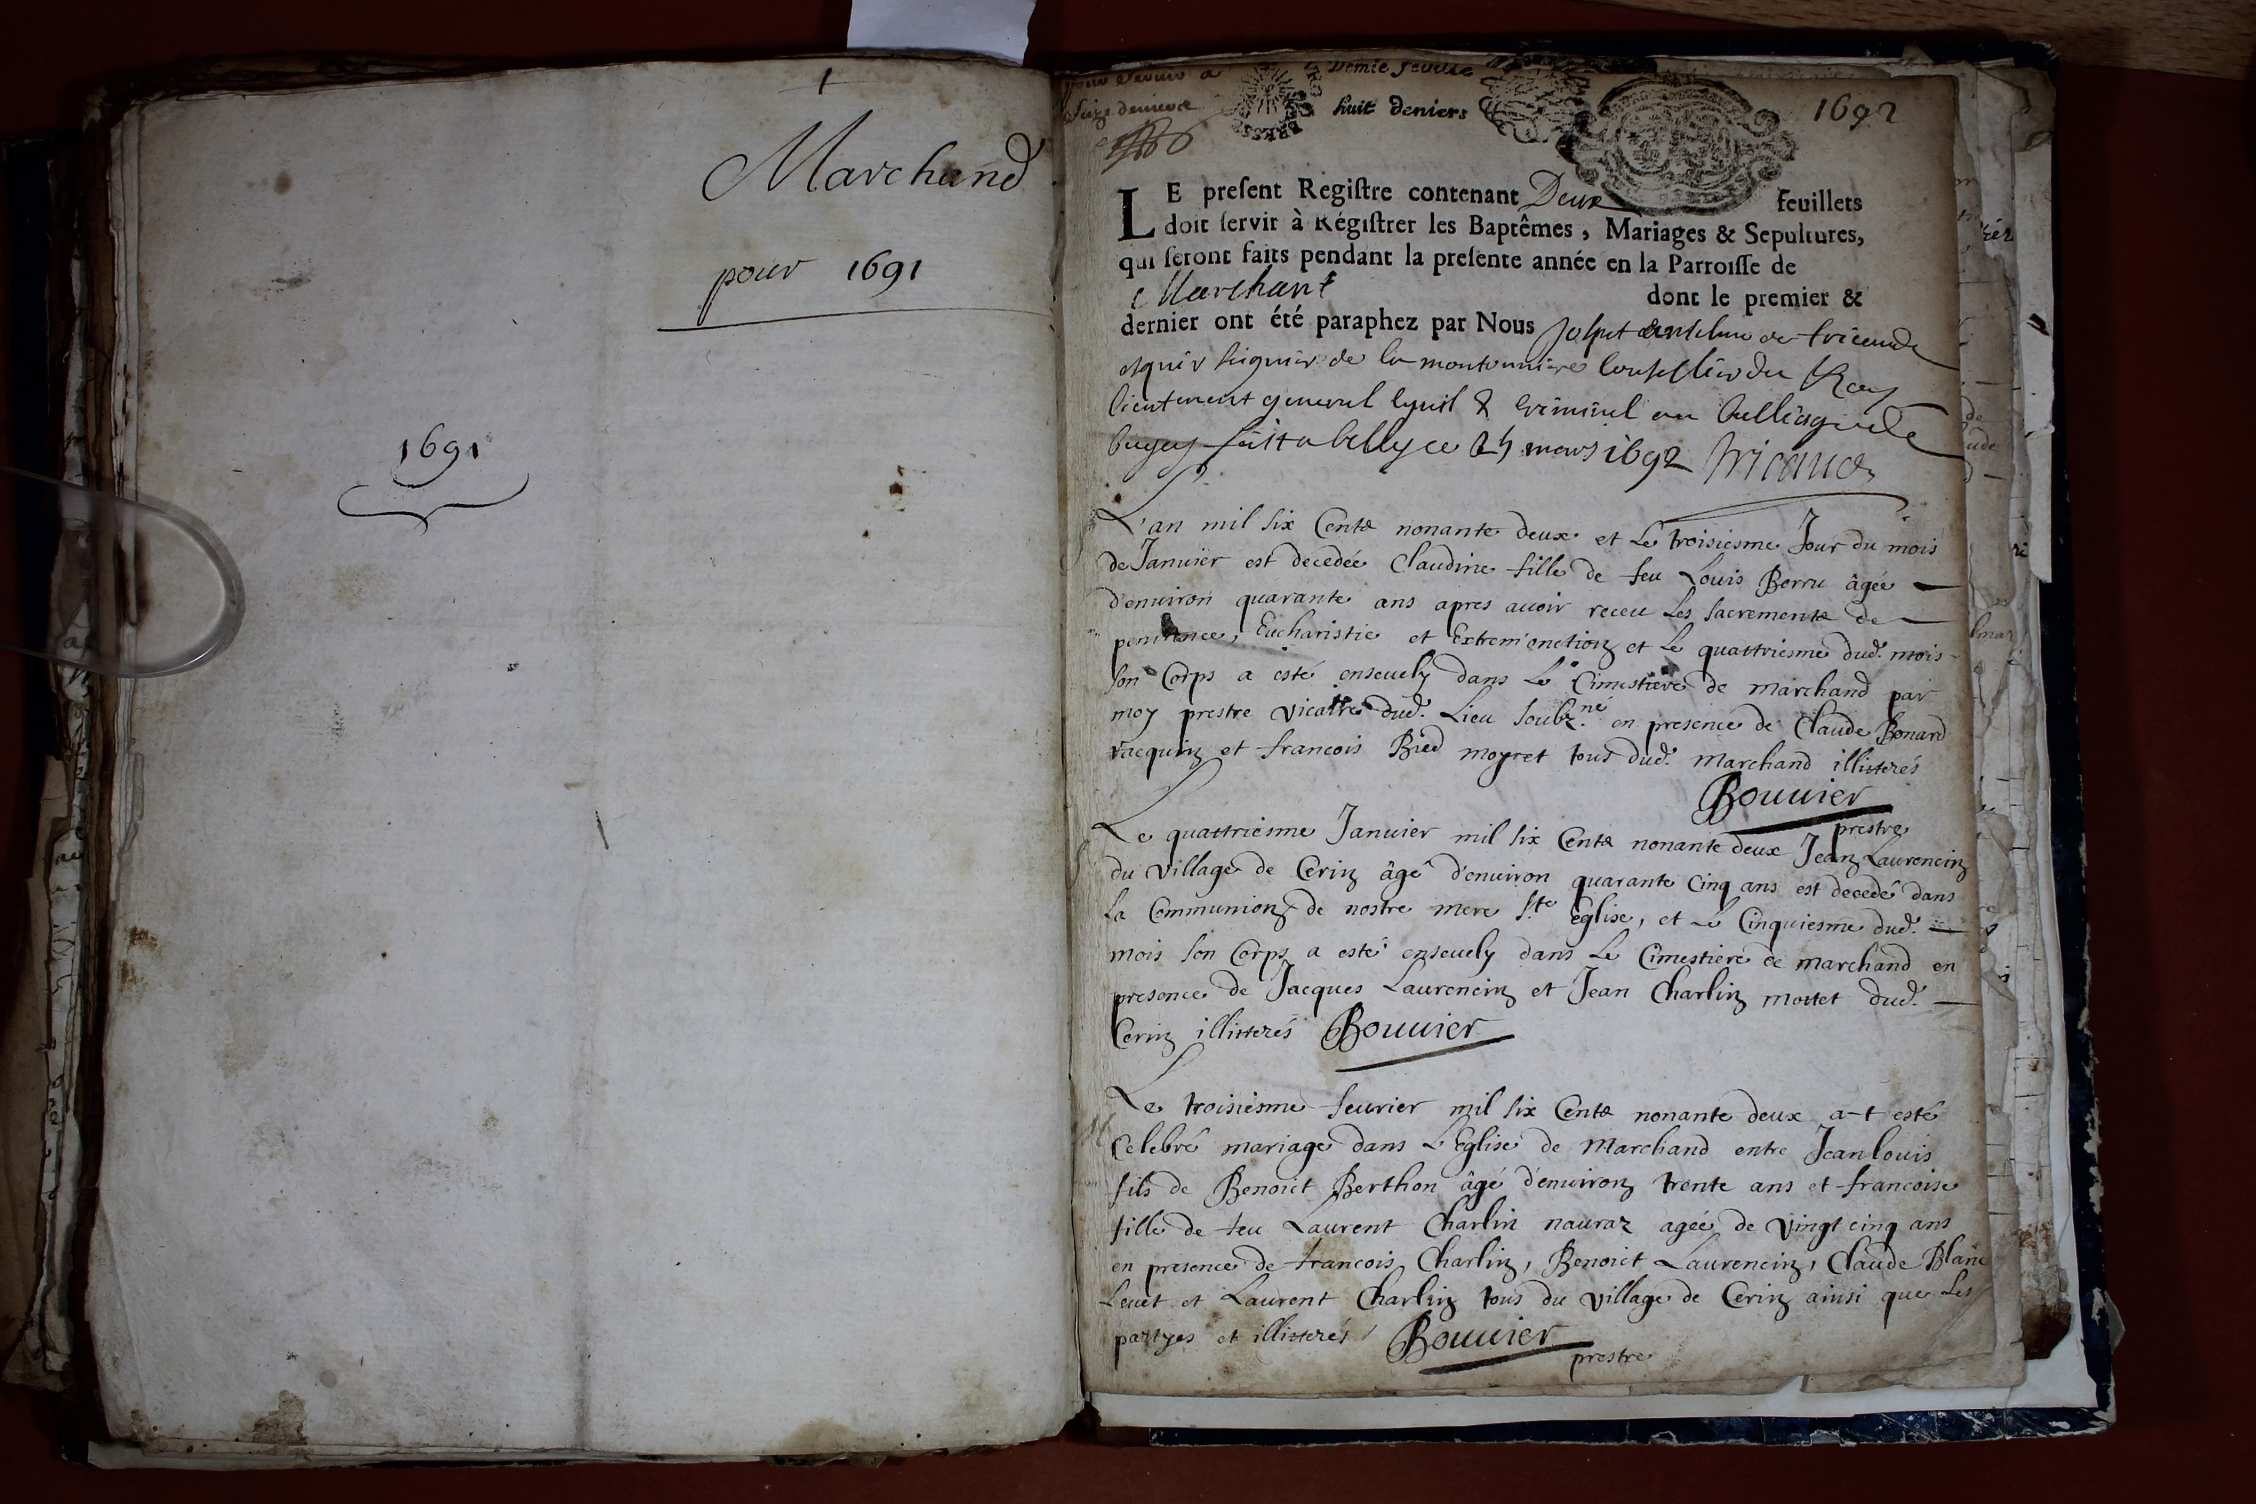 Marchand
pour 1691
1691
Demie feuille
huit deniers
1692
LE present Registre contenant Deux feuillets
doit servir à Régistrer les Baptêmes, Mariages & Sepultures,
qui seront faits pendant la presente année en la Parroisse de
Marchant dont le premier &
dernier ont été paraphez par Nous de
seigneur de la Conseiller du Roy
lieutenant general & criminel au
bugey fait a belley ce mars 1692
L'an mil six Cents nonante deux et Le troisiesme Jour du mois
de Januier est decedée Claudine fille de feu Louis Borru âgée
d'enuiron quarante ans apres auoir receu Les sacrements de
penitence, Eucharistie et Extrem'onction et Le quattriesme dud. mois
son Corps a esté enseuely dans Le Cimestiere de marchand par
moy prestre vicaire dud. Lieu soubz.né en presence de Claude Bonard
racquin et francois Bied moyret tous dud. marchand illitterés
Bouuier
prestre
Le quattriesme Januier mil six Cents nonante deux Jean Laurencin
du village de Cerin âgé d'enuiron quarante Cinq ans est decedé dans
La Communion de nostre mere Ste Eglise, et Le Cinquiesme dud.
mois son Corps a esté enseuely dans Le Cimestiere de marchand en
presence de Jacques Laurencin et Jean Charlin mottet dud.
Cerin illitterés Bouuier
Le troisiesme feurier mil six Cents nonante deux a-t esté
Celebré mariage dans L'Eglise de Marchand entre Jean louis
fils de Benoict Berthon âgé d'enuiron trente ans et francoise
fille de feu Laurent Charlin nauraz agée de vingt cinq ans
en presence de francois Charlin, Benoict Laurencin, Claude Blanc
Leuet et Laurent Charlin tous du village de Cerin ainsi que Les
partyes et illitterés Bouuier
prestre